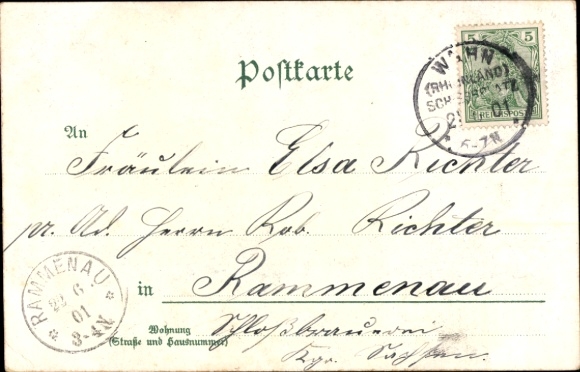 Postkarte
5 5
REICHSPOST
WAHN
(RHEINLAND)
SCHIESSPLATZ
01
6-7N
An
Fräulein Elsa Richter
pr. Ad. Herrn Rob. Richter
in Rammenau
Wohnung
(Straße und Hausnummer)
Schloßbrauerei
Kgr. Sachsen.
RAMMENAU
6
01
8-